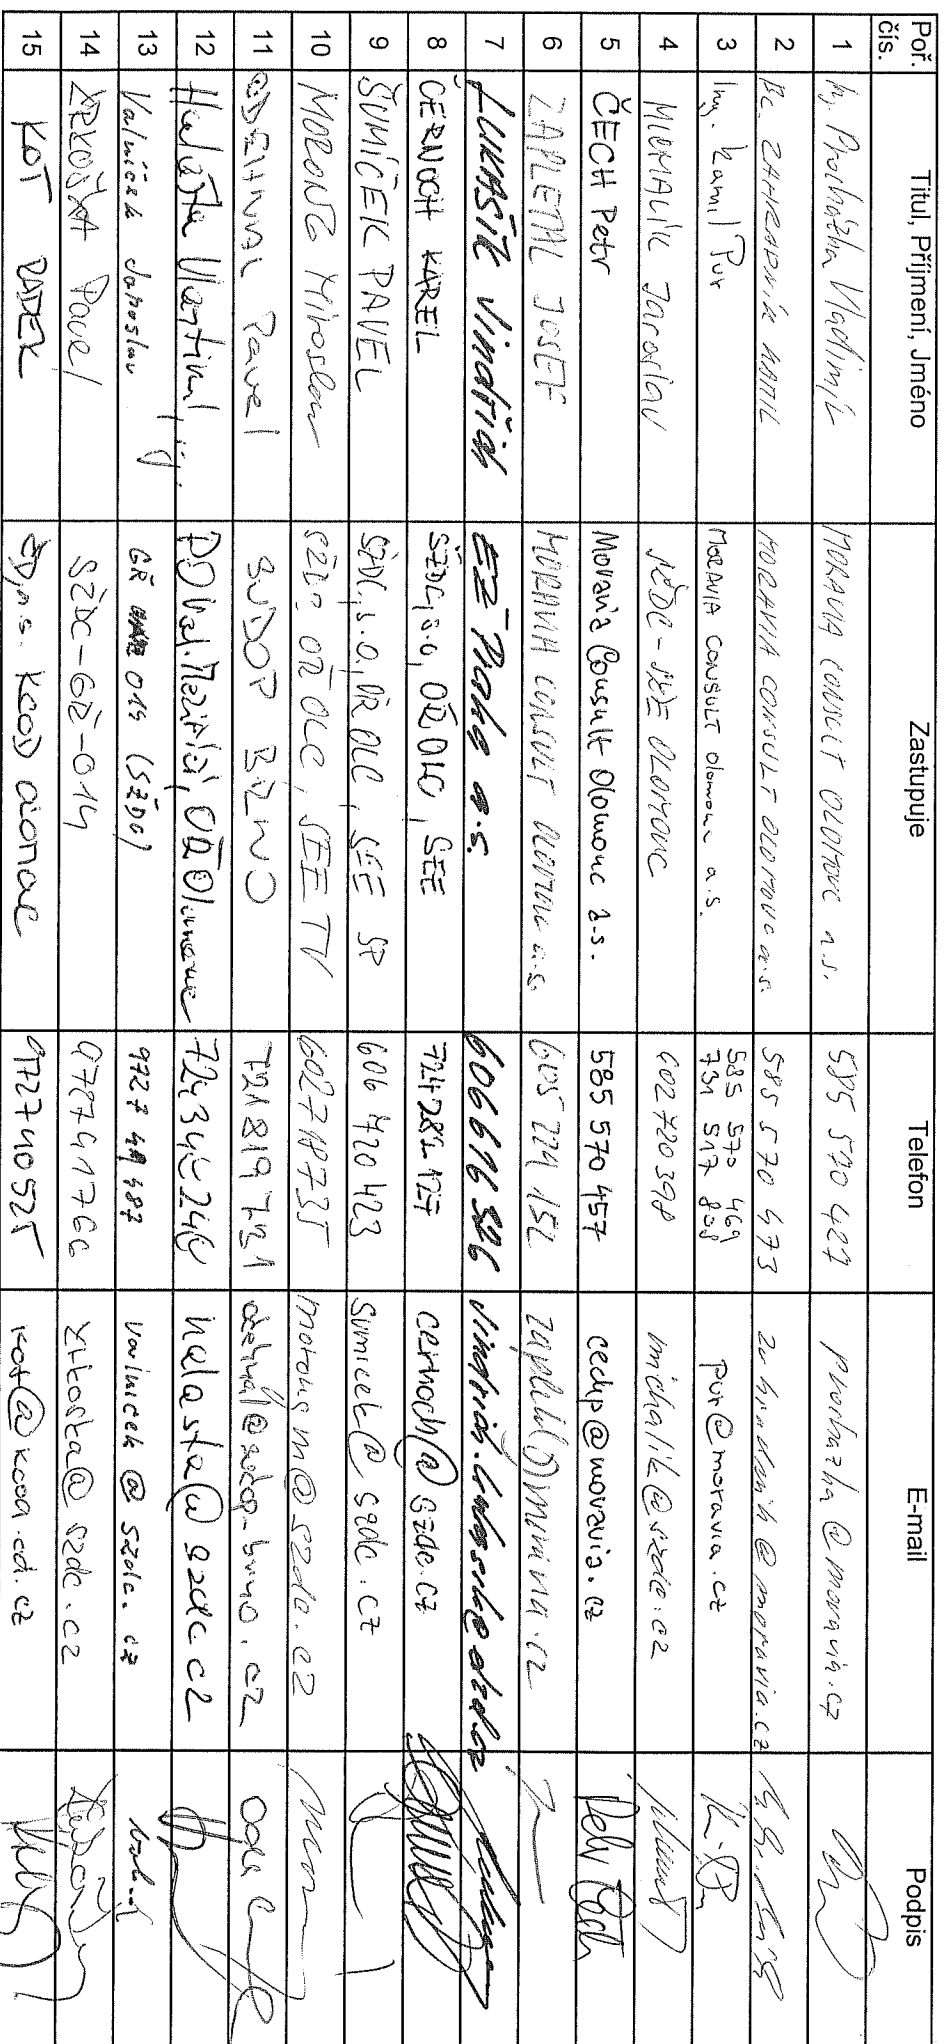 Poř. čís. Titul, Příjmení, Jméno Zastupuje Telefon E-mail Podpis
1 Ing. Procházka Vladimír MORAVIA CONSULT OLOMOUC a.s. 585 570 427 prochazka@moravia.cz
2 Bc. ZAHRADNÍK KAMIL MORAVIA CONSULT OLOMOUC a.s. 585 570 473 zahradnik@moravia.cz
3 Ing. Kamil Pur MORAVIA CONSULT Olomouc a.s. 585 570 469 731 517 808 pur@moravia.cz
4 MICHALÍK Jaroslav SŽDC - OLOMOUC 602 720 398 michalik@szdc.cz
5 ČECH Petr Moravia Consult Olomouc a.s. 585 570 457 cechp@moravia.cz
6 ZAPLETAL JOSEF MORAVIA CONSULT OLOMOUC a.s. 605 229 152 zapletal@moravia.cz
7 LUKAŠÍK Jindřich EŽ Praha a.s. 606 616 396
8 ČERNOCH KAREL SŽDC, s.o, OŘ OLC, SEE 724 282 127 cernoch@szdc.cz
9 ŠUMÍČEK PAVEL SŽDC, s.o, OŘ OLC, SEE 606 720 423 sumicek@szdc.cz
10 MORONG Miroslav SŽDC, OŘ OLC, SEE 602718735 morongm@szdc.cz
11 ODEHNAL Pavel SUDOP BRNO 721 819 721 odehnal@sudop-brno.cz
12 Halašta Martin, ing. PO Val. Meziříčí, OŘ Olomouc halasta@szdc.cz
13 Valníček Jaroslav GŘ 014 (SŽDC) valnicek@szdc.cz
14 ZRKOSKA Pavel SŽDC-GŘ-014 szdc.cz
15 KOT RADEK ČD, a.s. KCOD OLOMOUC 972740525 kot@kcod.cd.cz